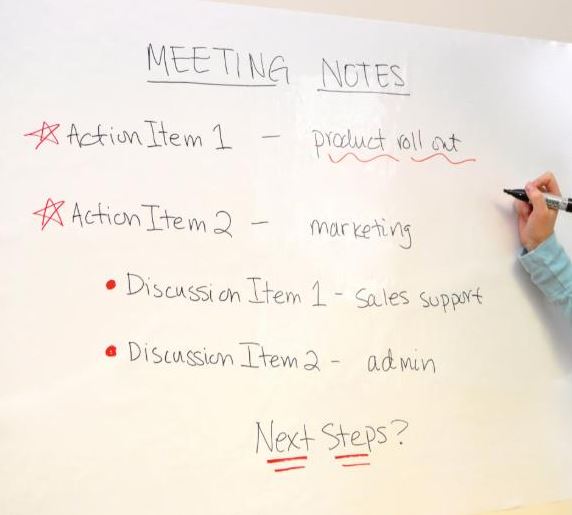 MEETING NOTES
Action Item 1 - product roll out
Action Item 2 - marketing
Discussion Item 1 - Sales support
Discussion Item 2 - admin
Next Steps?